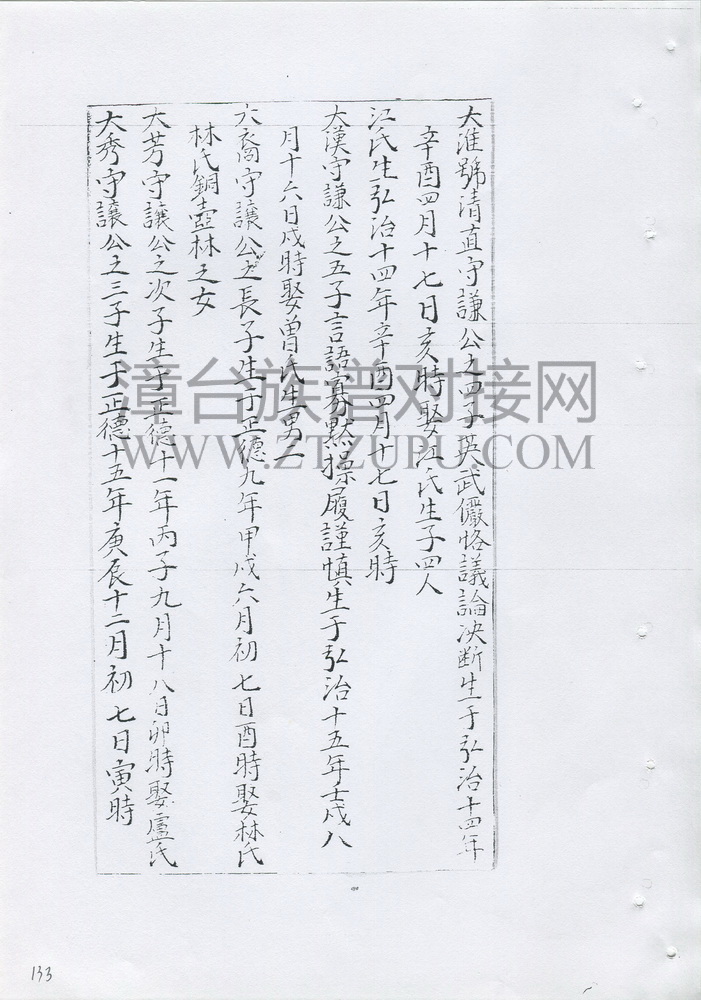 大淮號清直守謙公之四子英武儼恪議論决断生于弘治十四年
辛酉四月十七日亥時娶江氏生子四人
江氏生弘治十四年辛酉四月十七日亥時
大漢守謙公之五子言語寡默操履謹慎生于弘治十五年壬戌八
月十六日戌時娶曾氏生男二
大裔守讓公之長子生于正德九年甲戌六月初七日酉時娶林氏
林氏銅壺林之女
大芳守讓公之次子生于正德十一年丙子九月十八日卯時娶盧氏
大秀守讓公之三子生于正德十五年庚辰十二月初七日寅時
漳台族谱对接网
WWW.ZTZUPU.COM
133